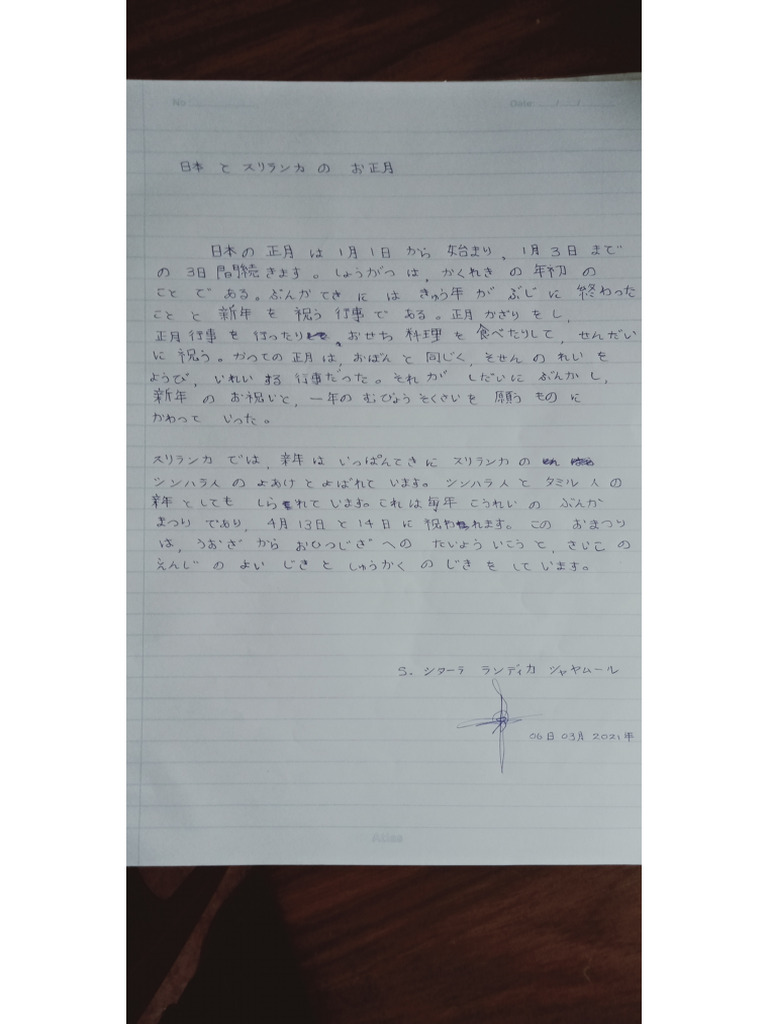 No
Date: / /
日本 と スリランカ の お正月
日本の 正月 は 1月1日 から 始まり、1月3日 まで
の 3日間続きます。しょうがつ は、かくれき の 年初 の
こと で ある。ぶんかてき に は きゅう年 が ぶじ に 終わった
こと と 新年 を 祝う 行事 で ある。正月 かざり を し、
正月行事 を 行ったり、おせち 料理 を 食べたりして、せんだい
に 祝う。かつての 正月 は、おぼん と 同じく、そせん の れい を
ようび、いれい する 行事だった。それ が しだいに ぶんか し、
新年 の お祝いと、一年の むびょう そくさい を 願う もの に
かわって いった。
スリランカ では、新年 は いっぱんてき に スリランカ の
シンハラ人 の よあけ と よばれて います。シンハラ人 と タミル 人 の
新年 としても しられて います。これは 毎年 こうれい の ぶんか
まつり であり、4月13日 と 14日 に 祝われます。この おまつり
は、うおざ から おひつじざ への たいよう いこう と、さいこ の
えんじ の よい じき と しゅうかく の じき を して います。
S. シターラ ランディカ ジャヤムール
06日 03月 2021年
Atlas